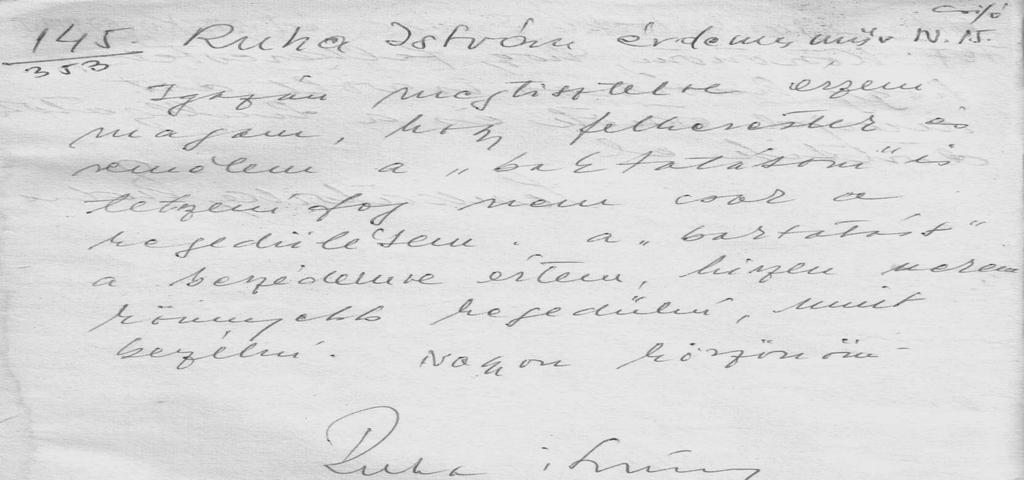 145. Ruha István érdemes műv. IV. 15.
353
Igazán megtisztelve érzem
magam, hogy felkerestek és
remélem a „baktatásom" is
tetszeni fog nem csak a
hegedülésem. a „baktatást"
a beszédemre értem, hiszen nekem
könnyebb hegedülni, mint
beszélni. Nagyon köszönöm
Ruha István